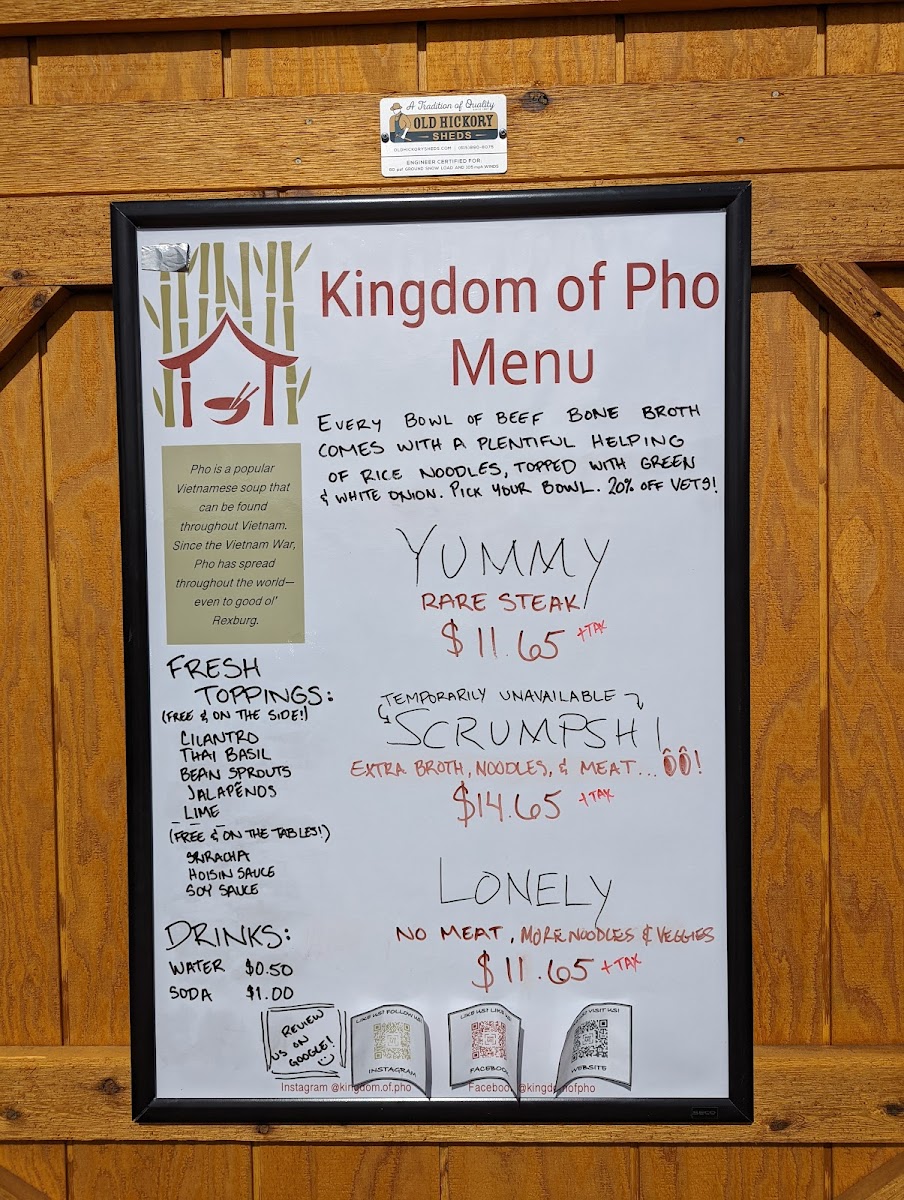 A Tradition of Quality
OLD HICKORY
SHEDS
ENGINEER CERTIFIED FOR:
Kingdom of Pho
Menu
EVERY BOWL OF BEEF BONE BROTH
COMES WITH A PLENTIFUL HELPING
OF RICE NOODLES, TOPPED WITH GREEN
& WHITE ONION. PICK YOUR BOWL. 20% OFF VETS!
Pho is a popular
Vietnamese soup that
can be found
throughout Vietnam.
Since the Vietnam War,
Pho has spread
throughout the world—
even to good ol'
Rexburg.
YUMMY
RARE STEAK
$11.65 +TAX
TEMPORARILY UNAVAILABLE
SCRUMPSH!
EXTRA BROTH, NOODLES, & MEAT...!
$14.65 +TAX
LONELY
NO MEAT, MORE NOODLES & VEGGIES
$11.65 +TAX
FRESH
TOPPINGS:
(FREE & ON THE SIDE!)
CILANTRO
THAI BASIL
BEAN SPROUTS
JALAPEÑOS
LIME
(FREE & ON THE TABLES!)
SRIRACHA
HOISIN SAUCE
SOY SAUCE
DRINKS:
WATER $0.50
SODA $1.00
REVIEW
US ON
GOOGLE!
LIKE US! FOLLOW US!
INSTAGRAM
LIKE US! LIKE US!
FACEBOOK
VISIT US!
WEBSITE
Instagram @kingdom.of.pho
Facebook @kingdomofpho